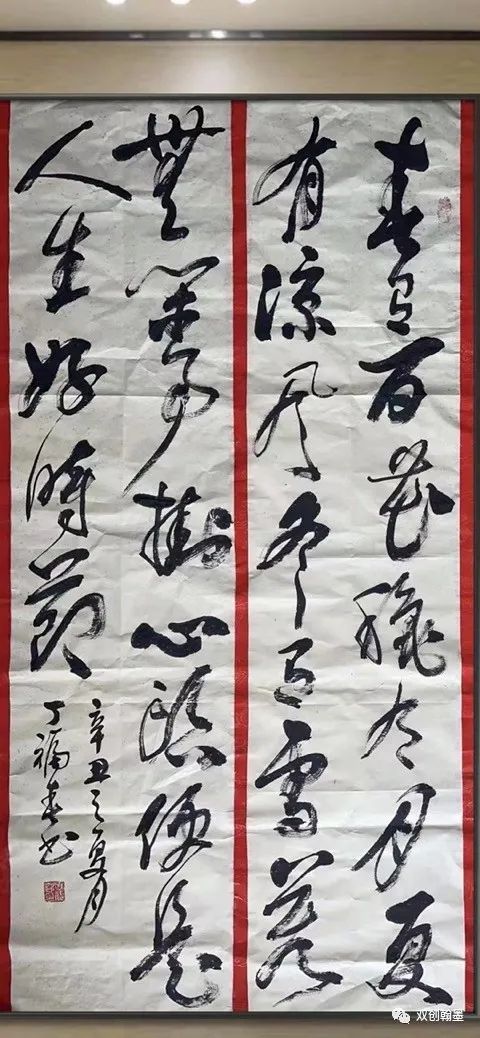 春有百花秋有月夏
有涼风冬有雪若
無闲事掛心頭便是
人生好時節
辛丑之夏月
丁福春书
双创翰墨